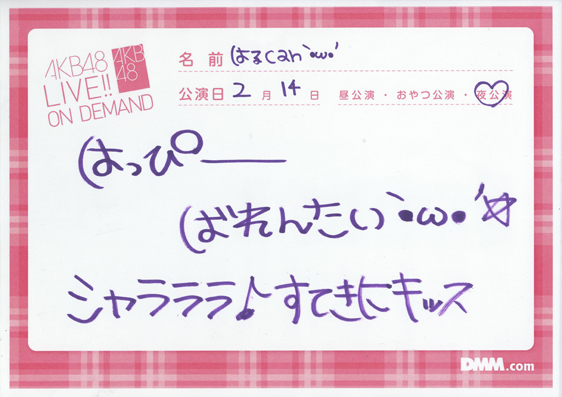 AKB48
LIVE!!
ON DEMAND
AKB
48
名前 はるcan`•ω•´
公演日 2月14日 昼公演・おやつ公演・夜公演
はっぴー
ばれんたい`•ω•´☆
シャラララ♪すてきにキッス
DMM.com